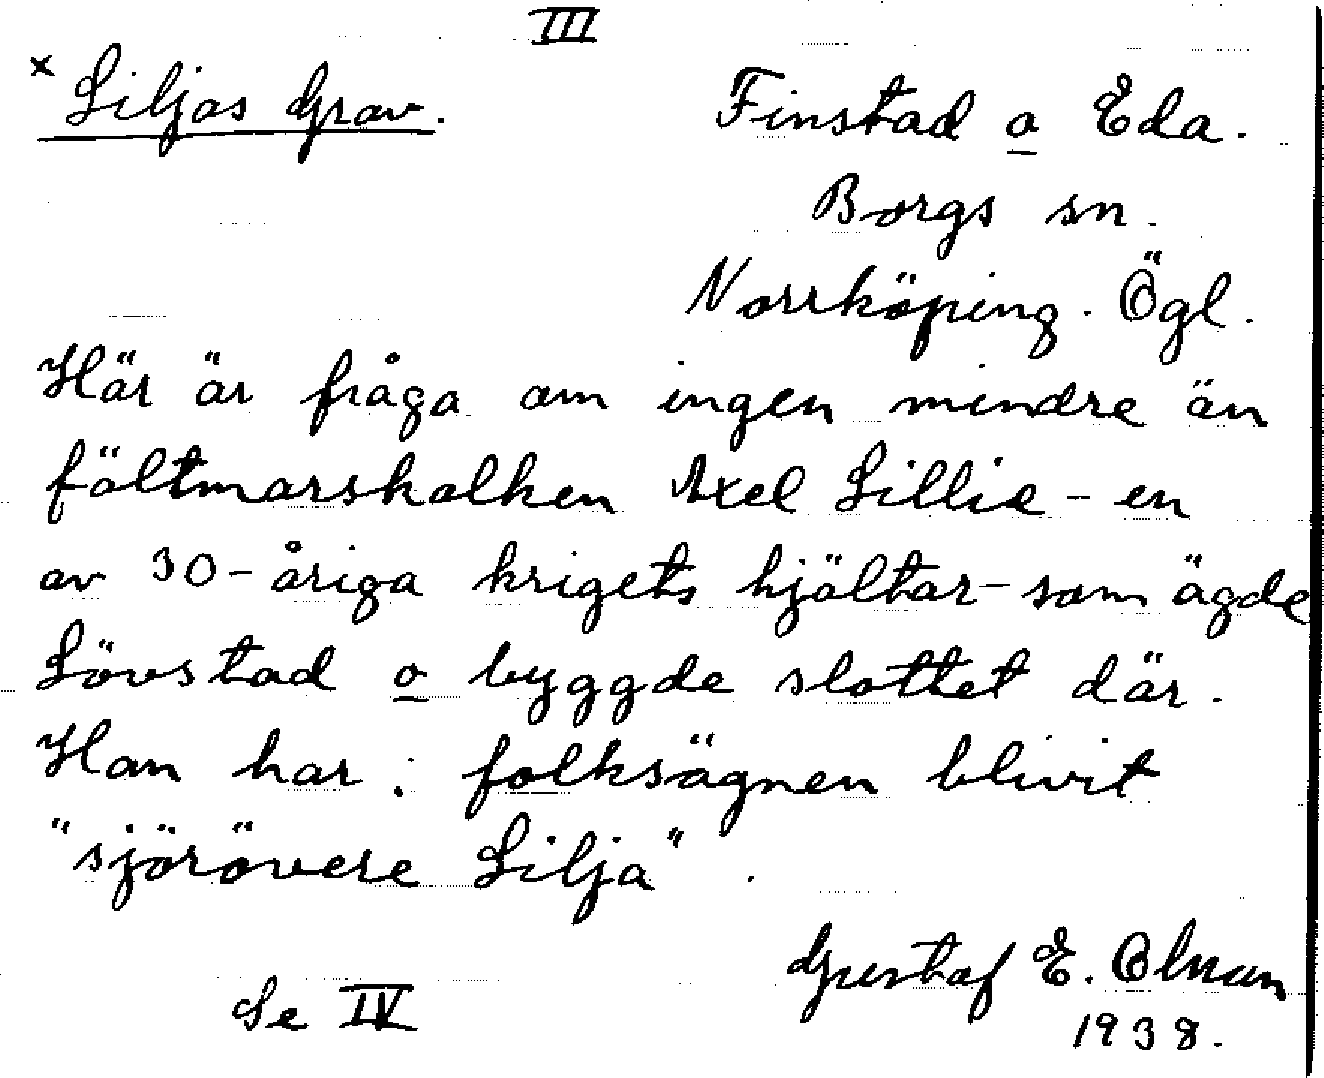 III
× Liljas Grav.
Finstad o Eda.
Borgs sn.
Norrköping. Ögl.
Här är fråga om ingen mindre än
fältmarskalken Axel Lillie - en
av 30-åriga krigets hjältar - som ägde
Lövstad o byggde slottet där.
Han har i folksägnen blivit
"sjörövere Lilja".
Gustaf E. Olman
1938.
Se IV